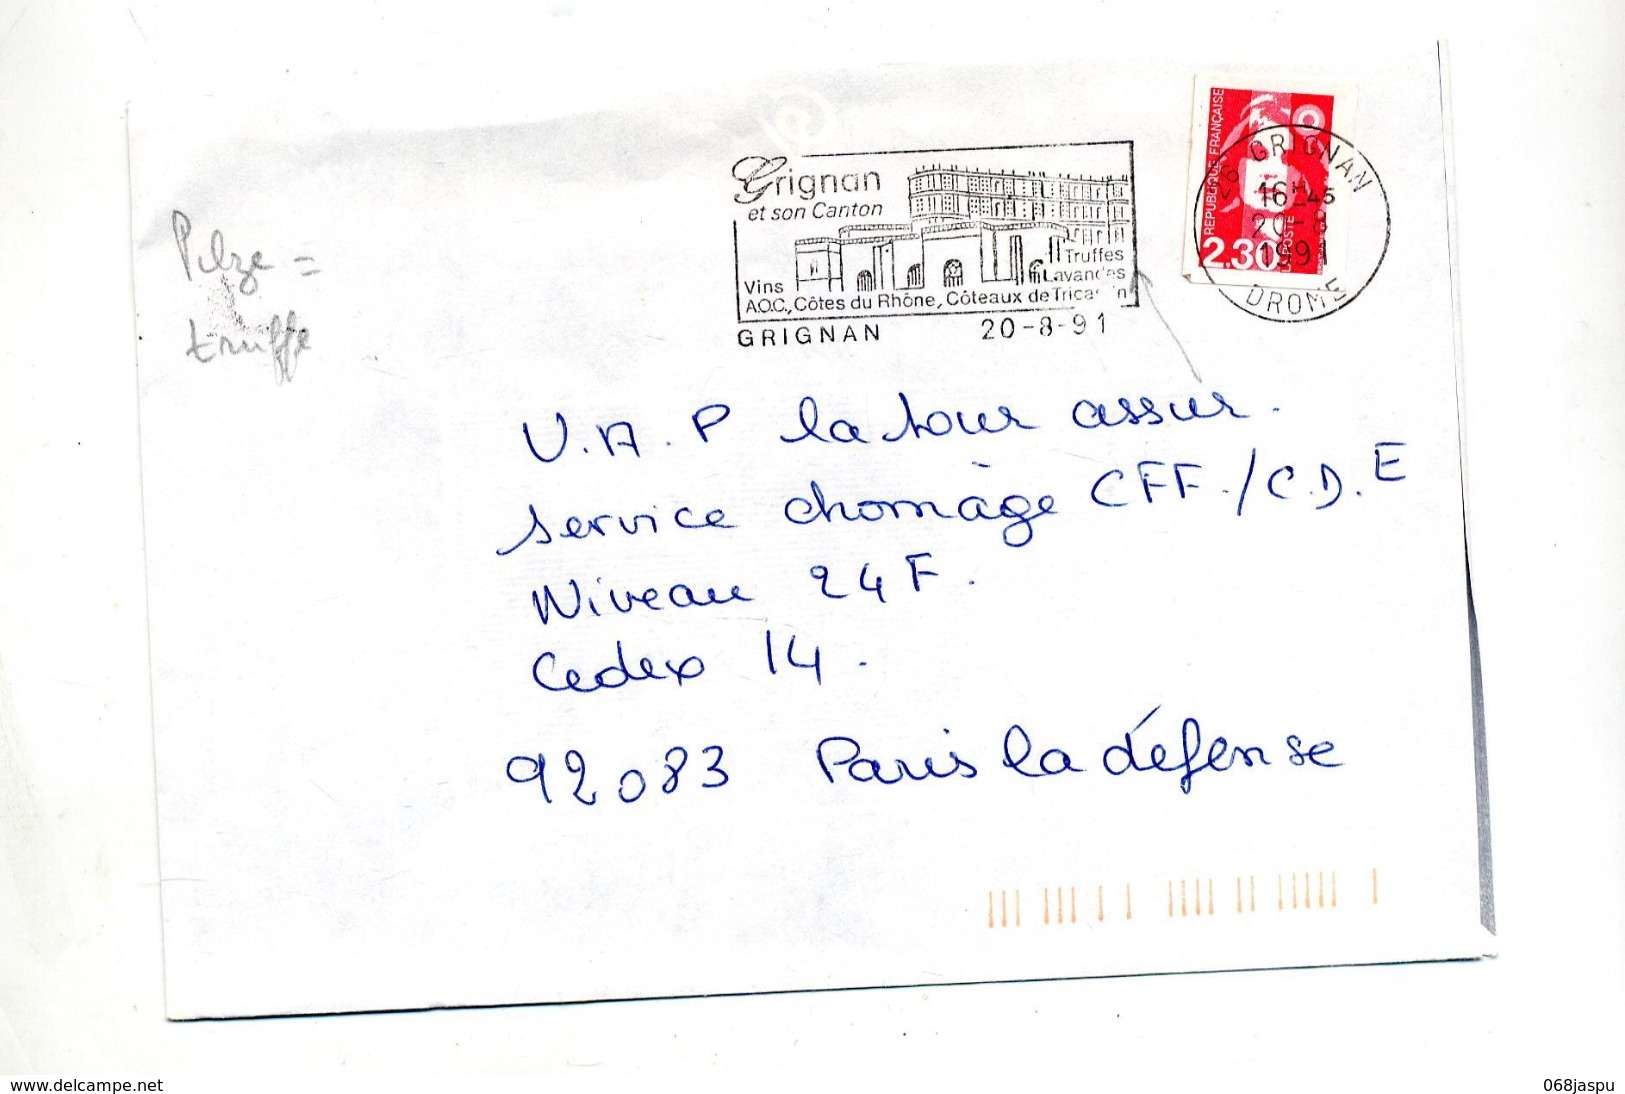 Grignan
et son Canton
Truffes
Lavandes
Vins
A.O.C., Côtes du Rhône, Côteaux de Tricastin
GRIGNAN 20-8-91
REPUBLIQUE FRANÇAISE
2.30
LA POSTE
26 GRIGNAN
16H45
20-8
1991
DROME
Pilze =
truffe
U.A.P la tour assur.
service chomàge CFF./C.D.E
Niveau 24F.
Cedex 14.
92083 Paris la défense
www.delcampe.net
068jaspu